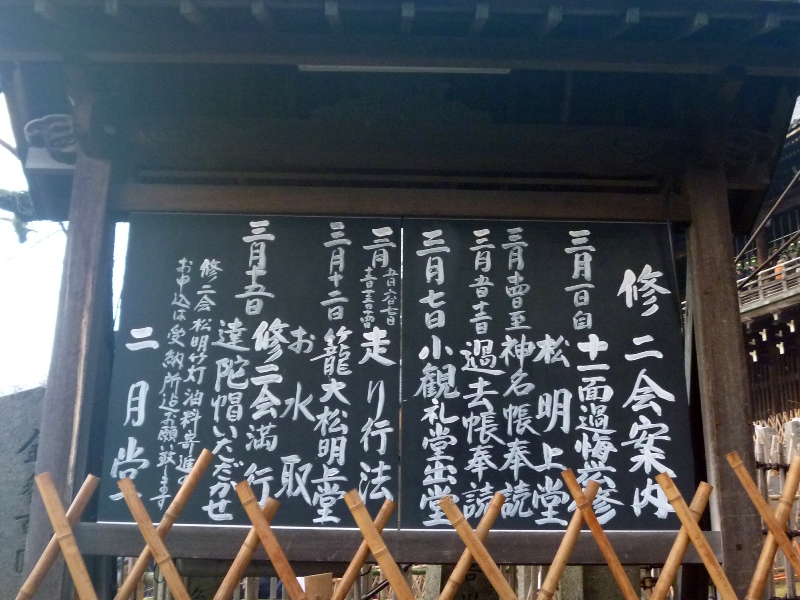 修二会案内
三月一日
十一面過悔法修
松明上堂
三月
神名帳奉読
三月五日
過去帳奉読
三月七日
小観礼堂出堂
三月 五日六日七日
走り行法
三月十二日
籠大松明上堂
お水取
三月十五日
修二会満行
達陀帽いただかせ
修二会松明竹灯油料寄進の
お申込は受納所迄お願い致します
二月堂